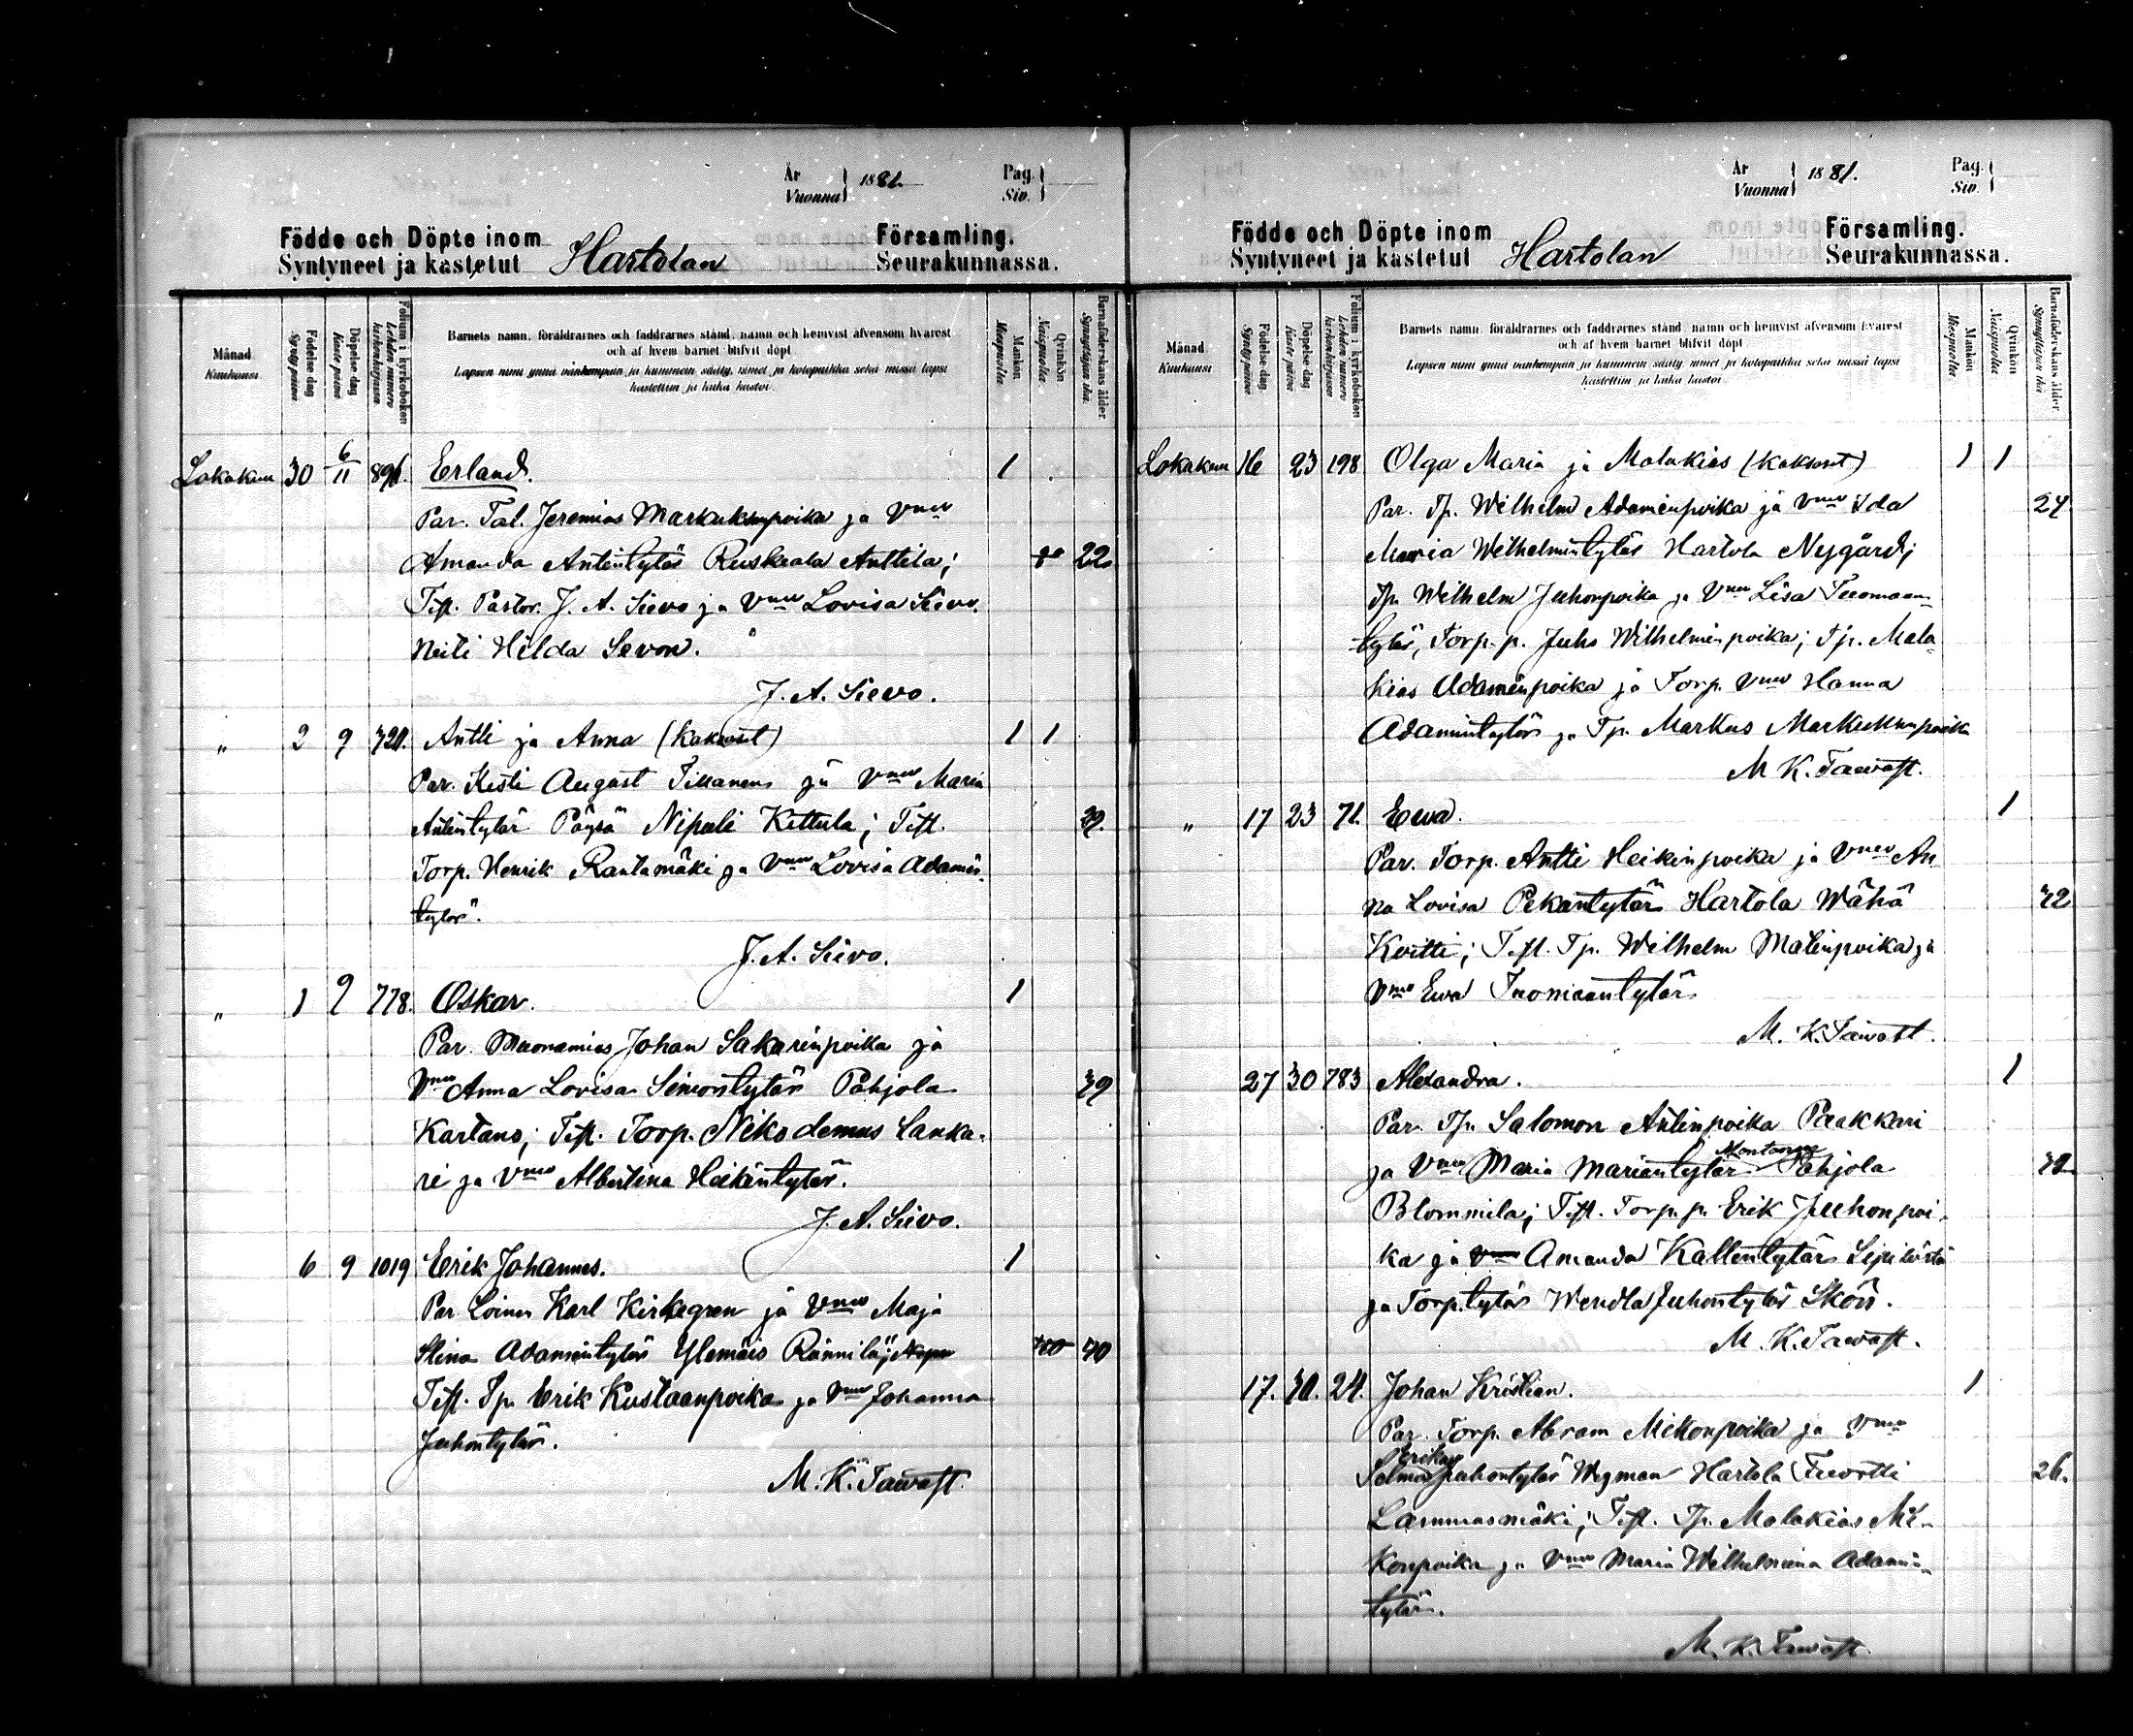 År Vuonna 1881. Pag. Siv.
Födde och Döpte inom Församling.
Syntyneet ja kastetut Hartolan Seurakunnassa.
Månad Kuukausi
Födelse dag Syntypäivä
Döpelse dag Kaste päivä
Folium i kyrkoboken Lehden numero kirkonkirjassa
Barnets namn, föräldrarnes och faddrarnes stånd, namn och hemvist äfvensom hvarest
och af hvem barnet blifvit döpt
Lapsen nimi ynnä vanhempain ja kummein sääty, nimet ja kotopaikka sekä missä lapsi
kastettiin ja kuka kastoi
Mankön Miespuolta
Qvinkön Naispuolta
Barnaföderskans ålder. Synnyttäjän ikä.
Lokakuu 30 6/11 896. Erland. 1
Par. Tal. Jeremias Markukunpoika ja Vmo
Amanda Antintytär Ruskeala Anttila; 22
Test. Pastor. J. A. Sievo ja Vmo Lovisa Sievo.
Neiti Hilda Sevon.
J. A. Sievo.
" 2 9 724. Antti ja Anna (Kaksoset) 1 1
Par. Kesti August Tikkanen ja Vmo Maria
Antintytär Pöyrä Nipuli Kittula; Test. 39.
Torp. Henrik Rautamäki ja Vmo Lovisa Adamin
tytär.
J. A. Sievo.
" 1 9 778. Oskar. 1
Par. Muonamies Johan Sakarinpoika ja
Vmo Anna Lovisa Simontytär Pohjola 39
Kartano; Test. Torp. Nikodemus Lanka-
ri ja Vmo Albertina Heikintytär.
J. A. Sievo.
6 9 1019 Erik Johannes. 1
Par. Loinen Karl Kirkegren ja Vmo Maja
Stina Adamintytär Ylemäis Rännilä; 40 40
Test. Tp. Erik Kustaanpoika ja Vmo Johanna
Juhontytär.
M. K. Tawast.
År Vuonna 1881. Pag. Siv.
Födde och Döpte inom Församling.
Syntyneet ja kastetut Hartolan Seurakunnassa.
Månad Kuukausi
Födelse dag Syntypäivä
Döpelse dag Kaste päivä
Folium i kyrkoboken Lehden numero kirkonkirjassa
Barnets namn, föräldrarnes och faddrarnes stånd, namn och hemvist äfvensom hvarest
och af hvem barnet blifvit döpt
Lapsen nimi ynnä vanhempain ja kummein sääty, nimet ja kotopaikka sekä missä lapsi
kastettiin ja kuka kastoi
Mankön Miespuolta.
Qvinkön Naispuolta
Barnaföderskans ålder. Synnyttäjän ikä
Lokakuu 16 23 198 Olga Maria ja Malakias (kaksoset) 1 1
Par. Tp. Wilhelm Adaminpoika ja Vmo Ida 24
Maria Wilhelmintytär Hartola Nygård;
Tp. Wilhelm Juhonpoika ja Vmo Lisa Tuomaan-
tytär, Torp. p. Juho Wilhelminpoika; Tp. Mala-
kias Adaminpoika ja Torp. Vmo Hanna
Adamintytär ja Tp. Markus Markukunpoika
M. K. Tawast.
" 17 23 71. Ewa. 1
Par. Torp. Antti Heikinpoika ja Vmo An-
na Lovisa Pekantytär Hartola Wähä 42
Koitti; Test. Tp. Wilhelm Matinpoika ja
Vmo Ewa Tuomaantytär
M. K. Tawast.
27 30 783 Alexandra. 1
Par. Tp. Salomon Antinpoika Paakkari
ja Vmo Maria Mariantytär Montonen Pohjola
Blommila; Test. Torp. p. Erik Juhonpoi-
ka ja Vmo Amanda Kallentytär
ja Torp.tytär Wendla Juhontytär Skön.
M. K. Tawast.
17. 30. 24. Johan Kristian. 1
Par. Torp. Abram Mikonpoika ja Vmo
Erika
Selma Juhontytär Wegman Hartola Tuortti 26.
Lammasmäki; Test. Tp. Malakias Mi-
konpoika ja Vmo Maria Wilhelmiina Adamin-
tytär.
M. K. Tawast.